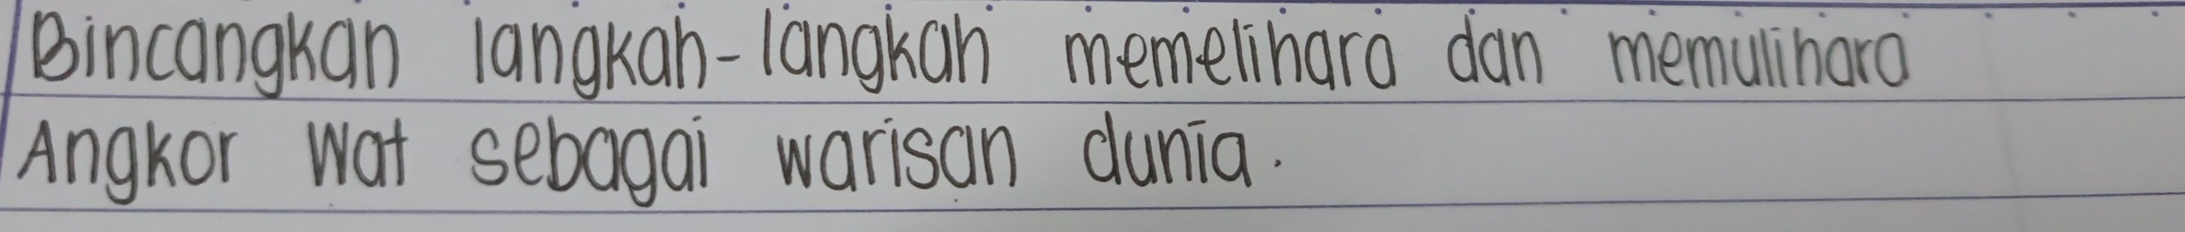 Bincangkan langkah-langkah memelihara dan memulihara
Angkor Wat sebagai warisan dunia.